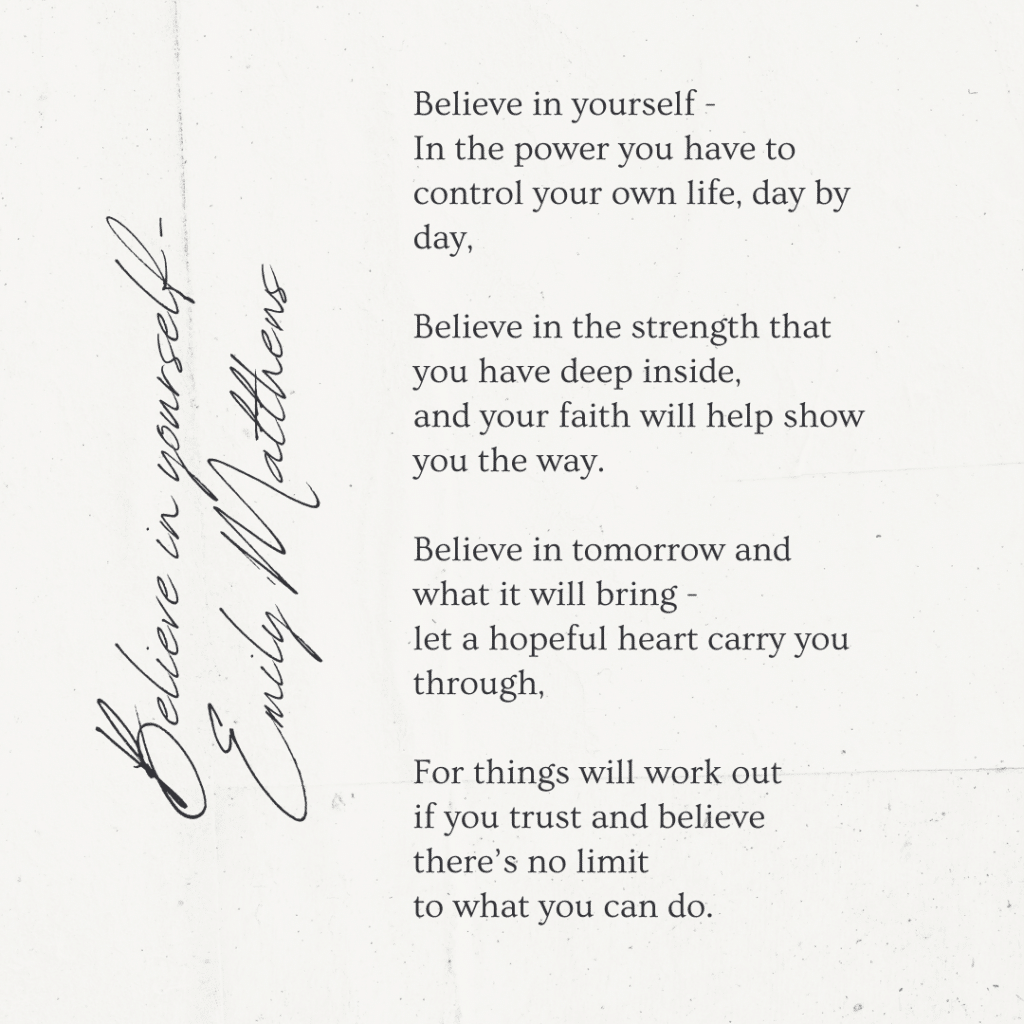 Believe in yourself -
Emily Matthens
Believe in yourself -
In the power you have to
control your own life, day by
day,
Believe in the strength that
you have deep inside,
and your faith will help show
you the way.
Believe in tomorrow and
what it will bring -
let a hopeful heart carry you
through,
For things will work out
if you trust and believe
there’s no limit
to what you can do.